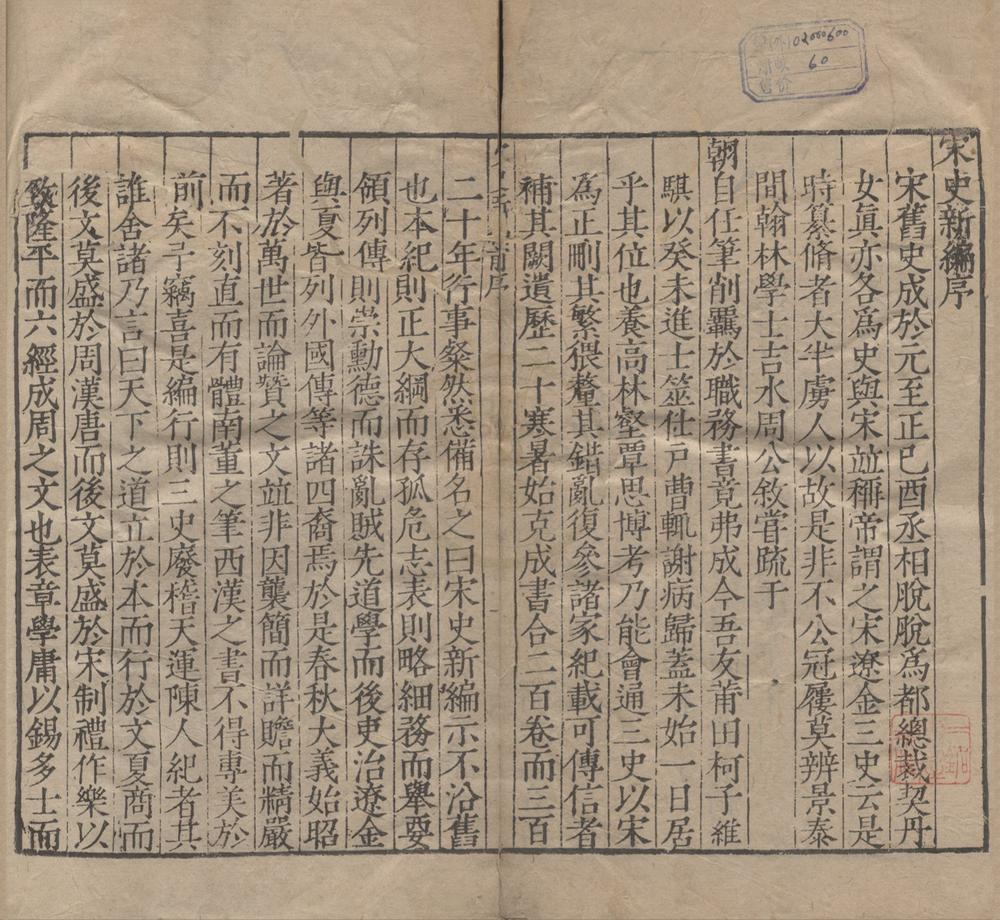 宋史新編序
宋舊史成於元至正己酉丞相脫脫爲都總裁契丹
女眞亦各爲史與宋並稱帝謂之宋遼金三史云是
時纂脩者大半虜人以故是非不公冠屨莫辨景泰
間翰林學士吉水周公敘嘗䟽于
朝自任筆削羈於職務書竟弗成今吾友莆田柯子維
騏以癸未進士筮仕戸曹輒謝病歸蓋未始一日居
乎其位也養高林壑覃思博考乃能會通三史以宋
爲正刪其繁猥釐其錯亂復參諸家紀載可傳信者
補其闕遺歷二十寒暑始克成書合二百卷而三百
二十年行事粲然悉備名之曰宋史新編示不沿舊
也本紀則正大綱而存孤危志表則略細務而舉要
領列傳則崇勳德而誅亂賊先道學而後吏治遼金
與夏皆列外國傳等諸四裔焉於是春秋大義始昭
著於萬世而論贊之文並非因襲簡而詳贍而精嚴
而不刻直而有體南董之筆西漢之書不得專美於
前矣予竊喜是編行則三史廢稽天運陳人紀者其
誰舍諸乃言曰天下之道立於本而行於文夏商而
後文莫盛於周漢唐而後文莫盛於宋制禮作樂以
致隆平而六經成周之文也表章學庸以錫多士而
02000600
60